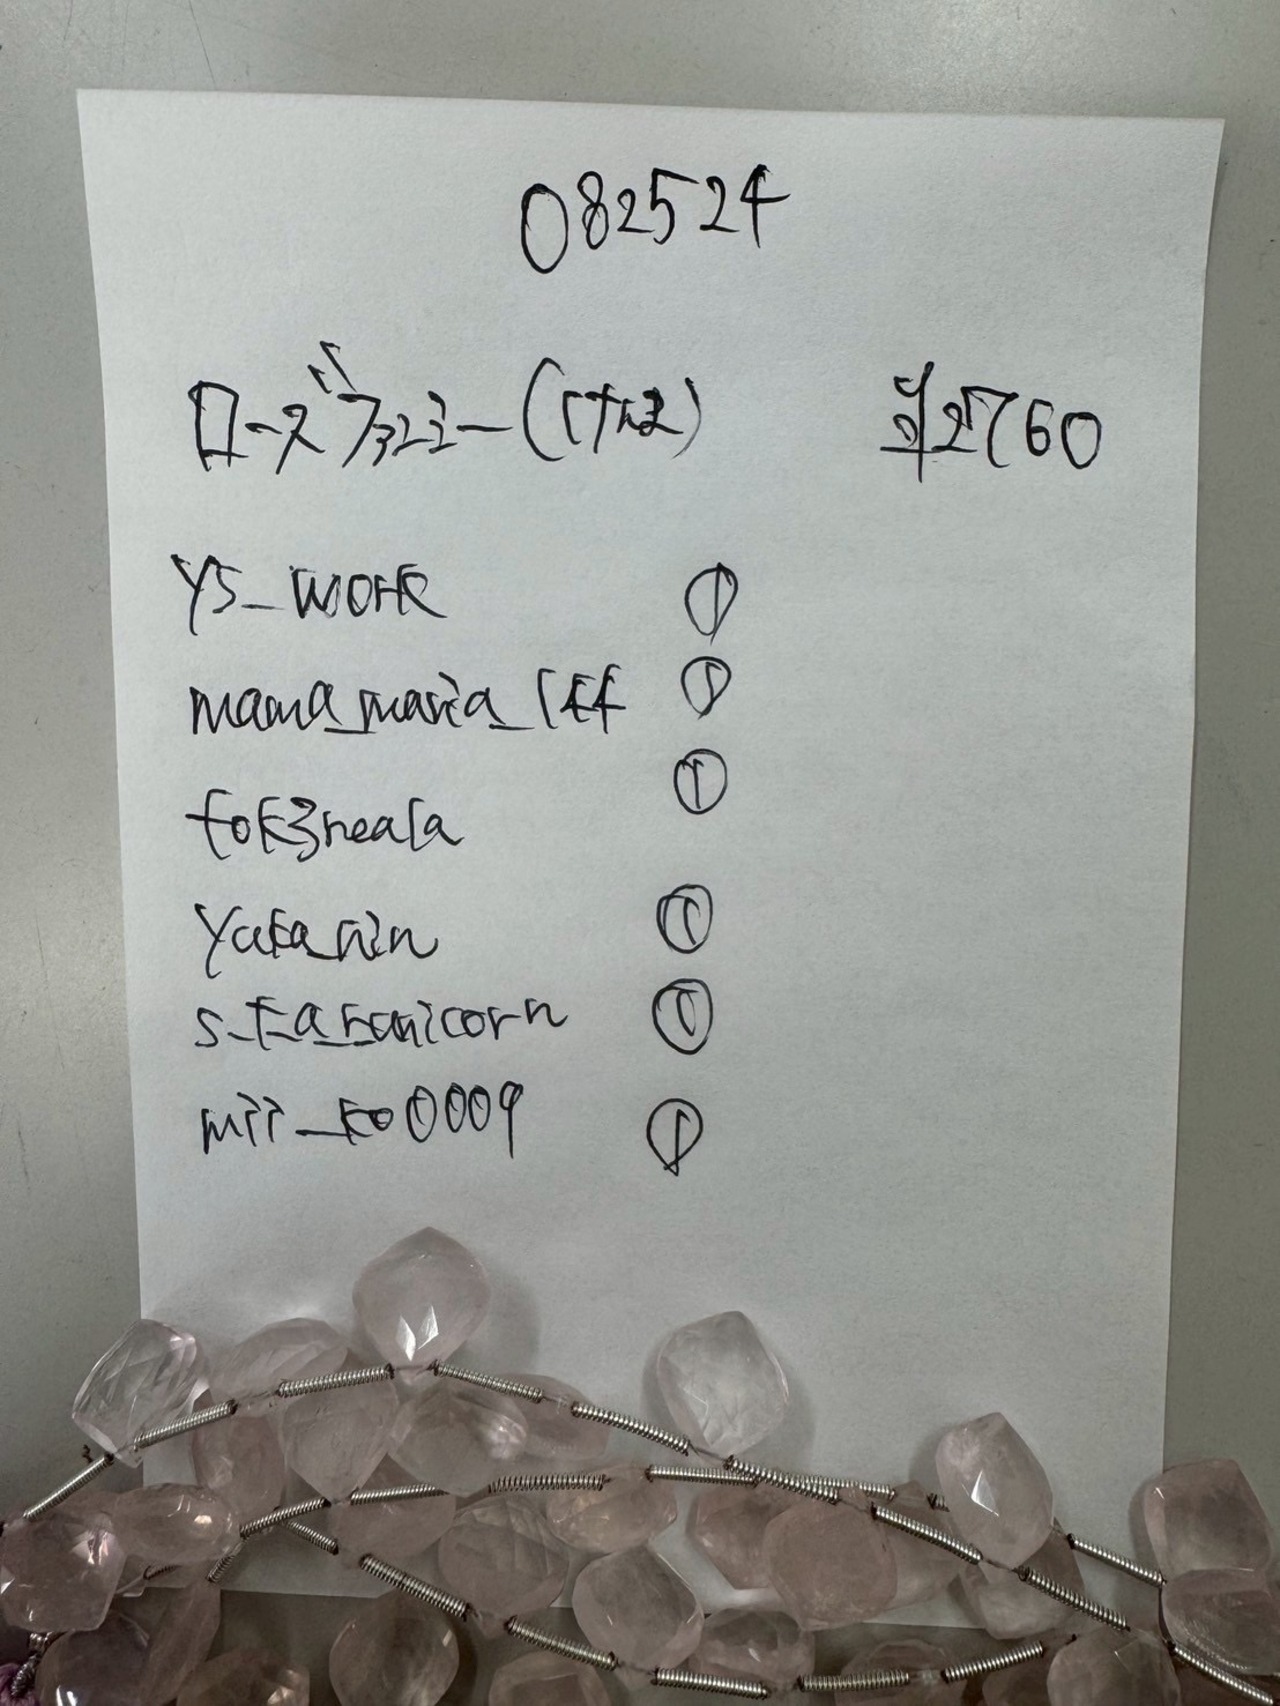 082524
ローズファンシー(けねま) ¥2760
YS_WORK ①
mama_maria_144 ①
tok3neala ①
yuka_nin ①
s_t_a_runicorn ①
mii_ko0009 ①